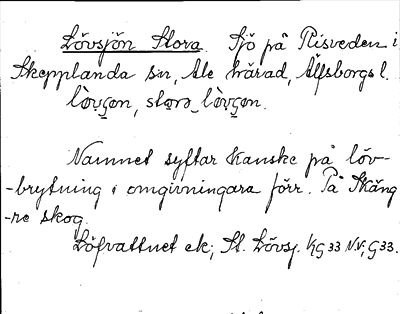 Lövsjön Stora. Sjö på Risveden i
Skepplanda sn, Ale härad, Älfsborgs l.
lòvʂon, storə lòvʂon.
Namnet syftar kanske på löv-
-brytning i omgivningarna förr. På Skång
-re skog.
Löfvattnet ek; St. Lövsj. KG 33 N.V, G 33.